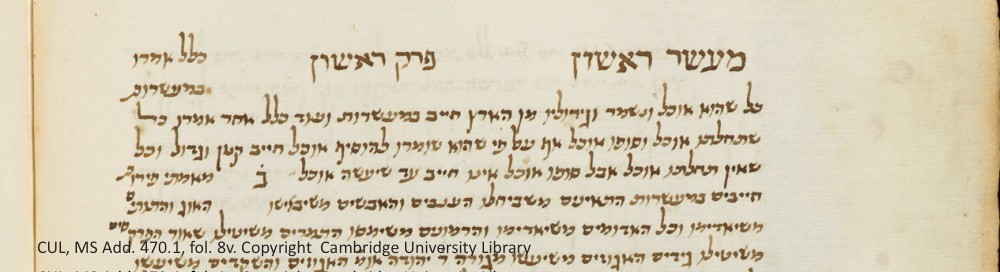 מעשר ראשון פרק ראשון כלל אמרו
במעשרות
כל שהוא אוכל ונשמר וגידוליו מן הארץ חייב במעשרות ועוד כלל אחר אמרו כל
שתחלתו אוכל וסופו אוכל אף על פי שהוא שומרו להוסיף אוכל חייב קטן וגדול וכל
שאין תחלתו אוכל אבל סופו אוכל אינו חייב עד שיעשה אוכל ב מאמתי
חייבים במעשרות משביחלו הענבים והאבשים האוג
משיאדימו וכל האדומים משיאדימו משימסו התמרים משיטילו שאור
משיטילו גידים האגוזים משיעשו מגורה ר יהודה אומ האגוזים והשקדים משיעשו
CUL, MS Add. 470.1, fol. 8v. Copyright Cambridge University Library